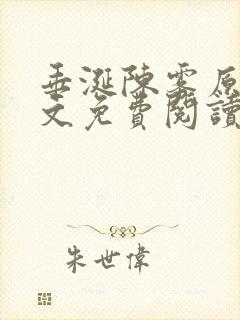 垂涎陳雾原
文免費閱讀
朱世偉